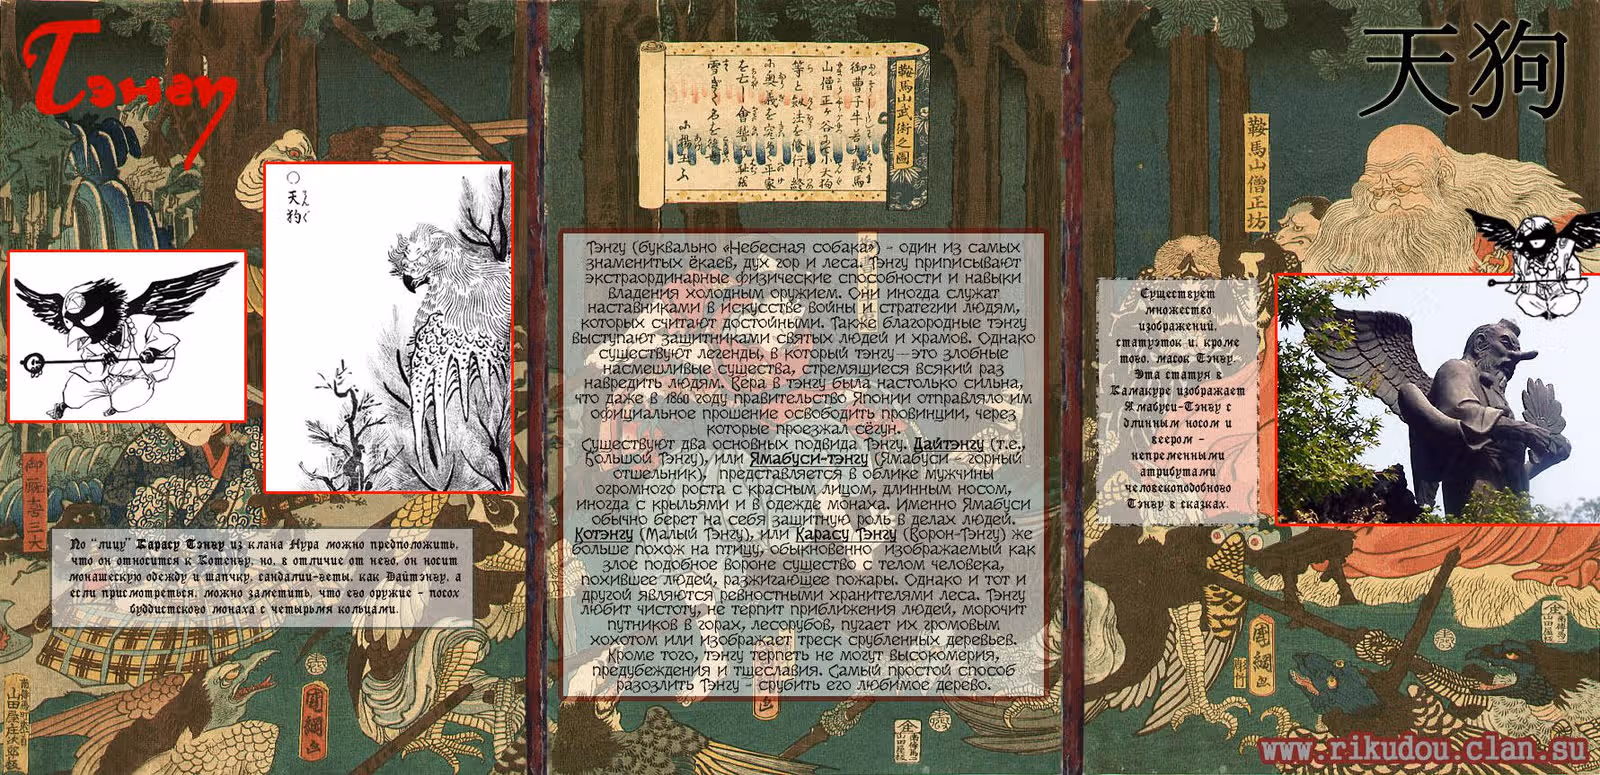 Тэнгу
天狗
てんぐ
По "лицу" Карасу Тэнгу из клана Нура можно предположить,
что он относится к Котенгу, но, в отличие от него, он носит
монашескую одежду и шапчку, сандалии-геты, как Дайтэнгу, а
если присмотреться, можно заметить, что его оружие - посох
буддистского монаха с четырьмя кольцами.
鞍馬山武術之圖
Тэнгу (буквально «Небесная собака») - один из самых
знаменитых ёкаев, дух гор и леса. Тэнгу приписывают
экстраординарные физические способности и навыки
владения холодным оружием. Они иногда служат
наставниками в искусстве войны и стратегии людям,
которых считают достойными. Также благородные тэнгу
выступают защитниками святых людей и храмов. Однако
существуют легенды, в который тэнгу—это злобные
насмешливые существа, стремящиеся всякий раз
навредить людям. Вера в тэнгу была настолько сильна,
что даже в 1860 году правительство Японии отправляло им
официальное прошение освободить провинции, через
которые проезжал сёгун.
Существуют два основных подвида Тэнгу. Дайтэнгу (т.е.,
Большой Тэнгу), или Ямабуси-тэнгу (Ямабуси - горный
отшельник), представляется в облике мужчины
огромного роста с красным лицом, длинным носом,
иногда с крыльями и в одежде монаха. Именно Ямабуси
обычно берет на себя защитную роль в делах людей.
Котэнгу (Малый Тэнгу), или Карасу Тэнгу (Ворон-Тэнгу) же
больше похож на птицу, обыкновенно изображаемый как
злое подобное вороне существо с телом человека,
похившее людей, разжигающее пожары. Однако и тот и
другой являются ревностными хранителями леса. Тэнгу
любит чистоту, не терпит приближения людей, морочит
путников в горах, лесорубов, пугает их громовым
хохотом или изображает треск срубленных деревьев.
Кроме того, тэнгу терпеть не могут высокомерия,
предубеждения и тщеславия. Самый простой способ
разозлить Тэнгу - срубить его любимое дерево.
天狗
鞍馬山僧正坊
Существует
множество
изображений,
статуэток и, кроме
того, масок Тэнгу.
Эта статуя в
Камакуре изображает
Ямабуси-Тэнгу с
длинным носом и
веером -
непременными
атрибутами
человекоподобного
Тэнгу в сказках.
國綱画
國綱画
www.rikudou.clan.su